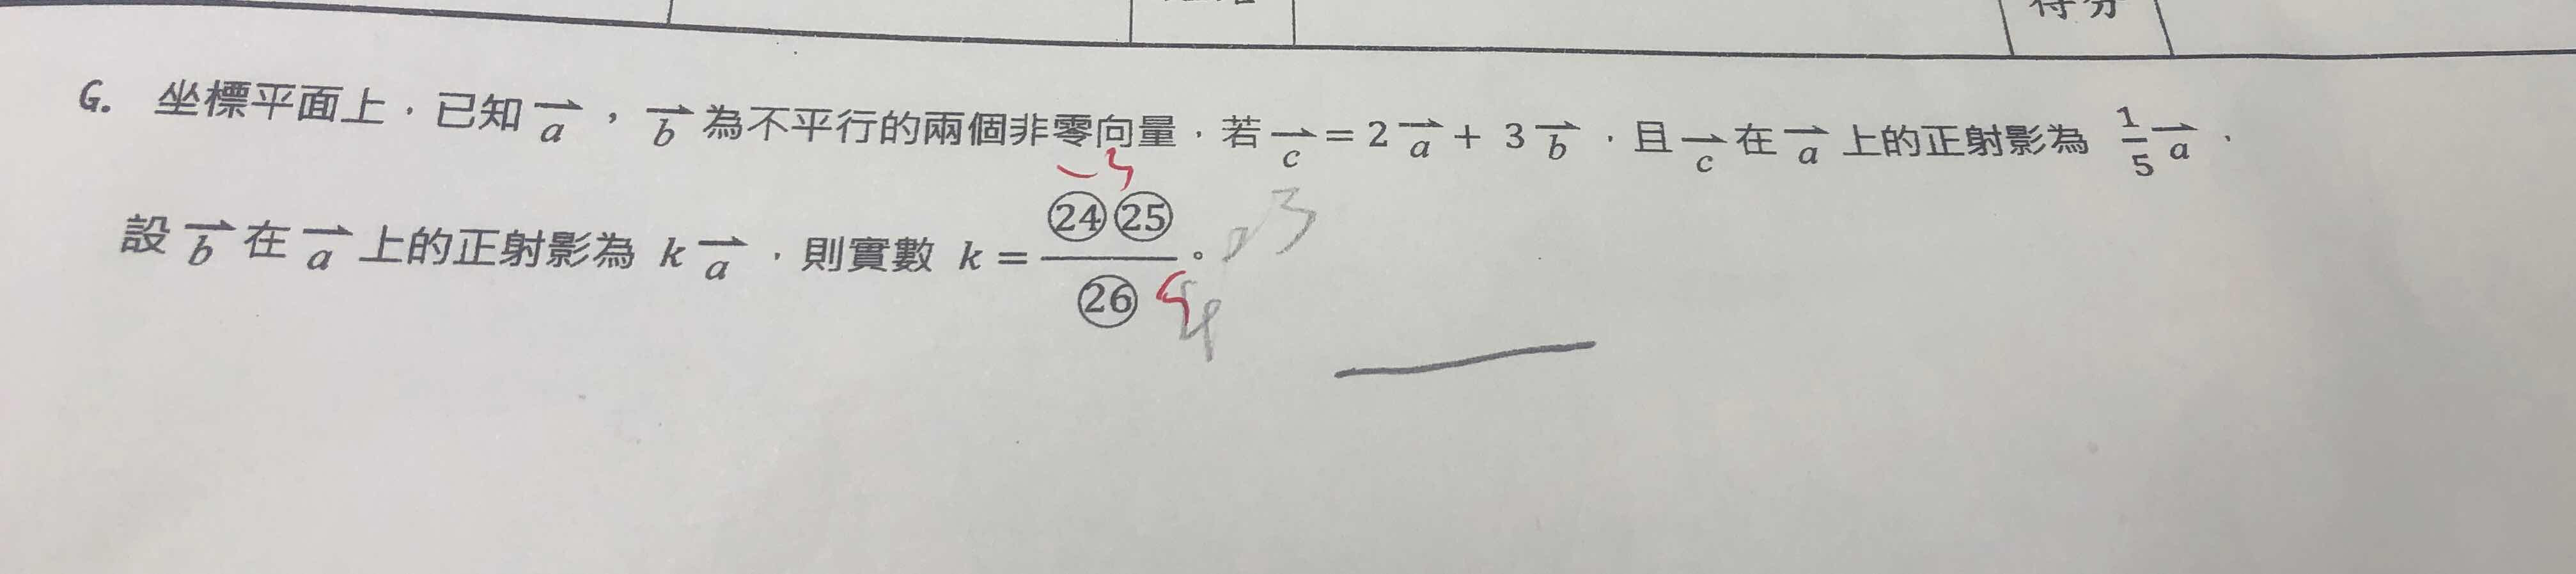 得分
G. 坐標平面上，已知 $\overrightarrow{a}$，$\overrightarrow{b}$ 為不平行的兩個非零向量，若 $\overrightarrow{c}$ = 2$\overrightarrow{a}$ + 3$\overrightarrow{b}$，且 $\overrightarrow{c}$ 在 $\overrightarrow{a}$ 上的正射影為 $\frac{1}{5}\overrightarrow{a}$，
設 $\overrightarrow{b}$ 在 $\overrightarrow{a}$ 上的正射影為 k$\overrightarrow{a}$，則實數 k = $\frac{㉔㉕}{㉖}$。